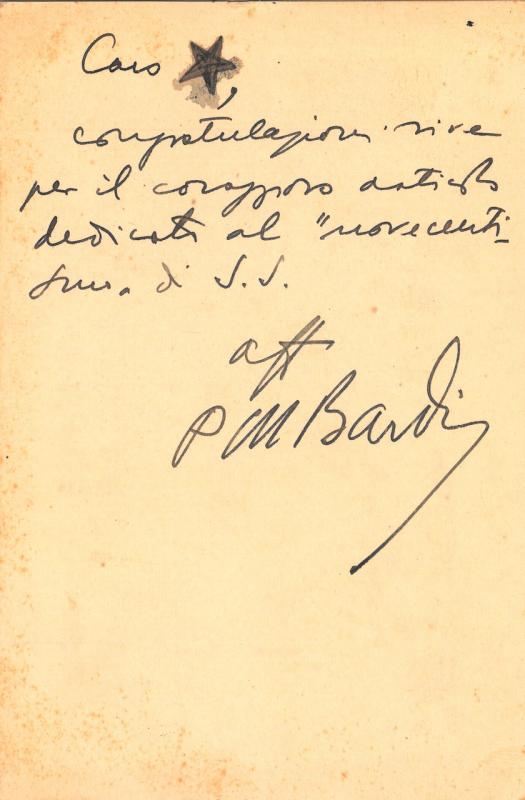 Caro ★,
congratulazioni vive
per il coraggioso articolo
dedicato al "novecenti-
smo" di S.S.
aff
P M Bardi